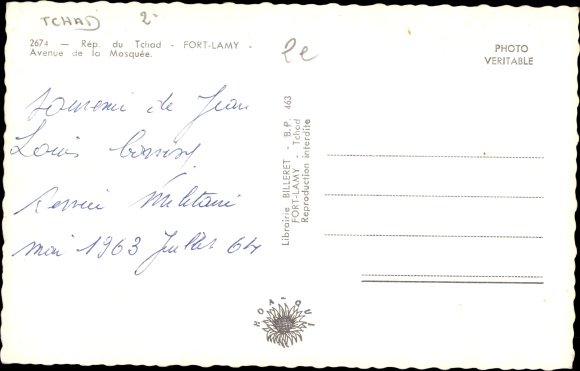 TCHAD 2-
2674 — Rép. du Tchad - FORT-LAMY -
Avenue de la Mosquée.
PHOTO
VERITABLE
Souvenir de Jean
Louis
Service Militaire
mai 1963 Juillet 64
Librairie BILLERET - B.P. 463
FORT-LAMY - Tchad
Reproduction interdite
HOA-QUI